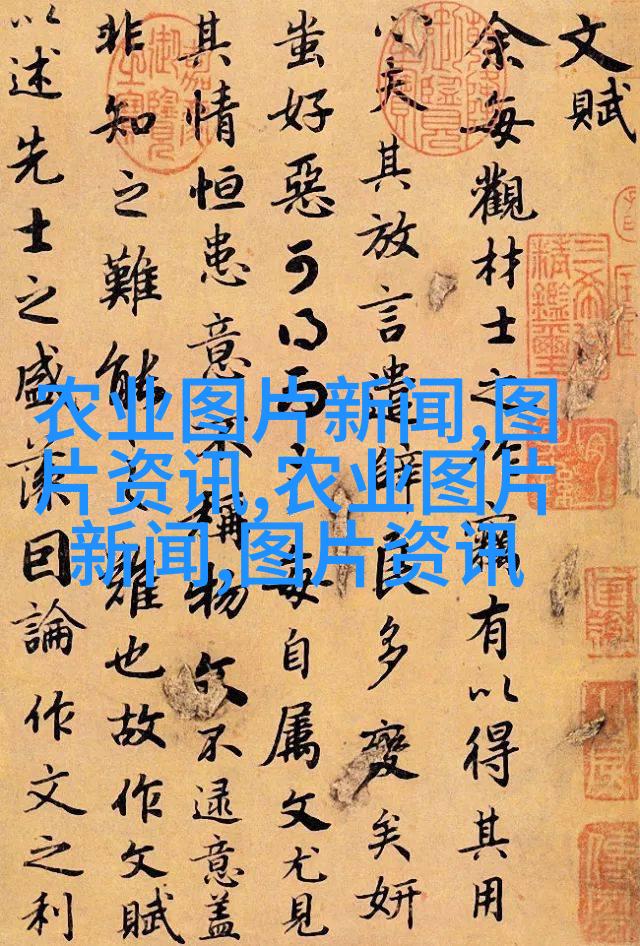 文賦
余每觀材士之作竊有以得其用
心夫其放言遣辭良多變矣妍
蚩好惡可得而言每自属文尤見
其情恒患意不稱物文不逮意盖
非知之難能之難也故作文賦
以述先士之盛藻因論作文之利
农业图片新闻,图
片资讯,农业图片
新闻,图片资讯